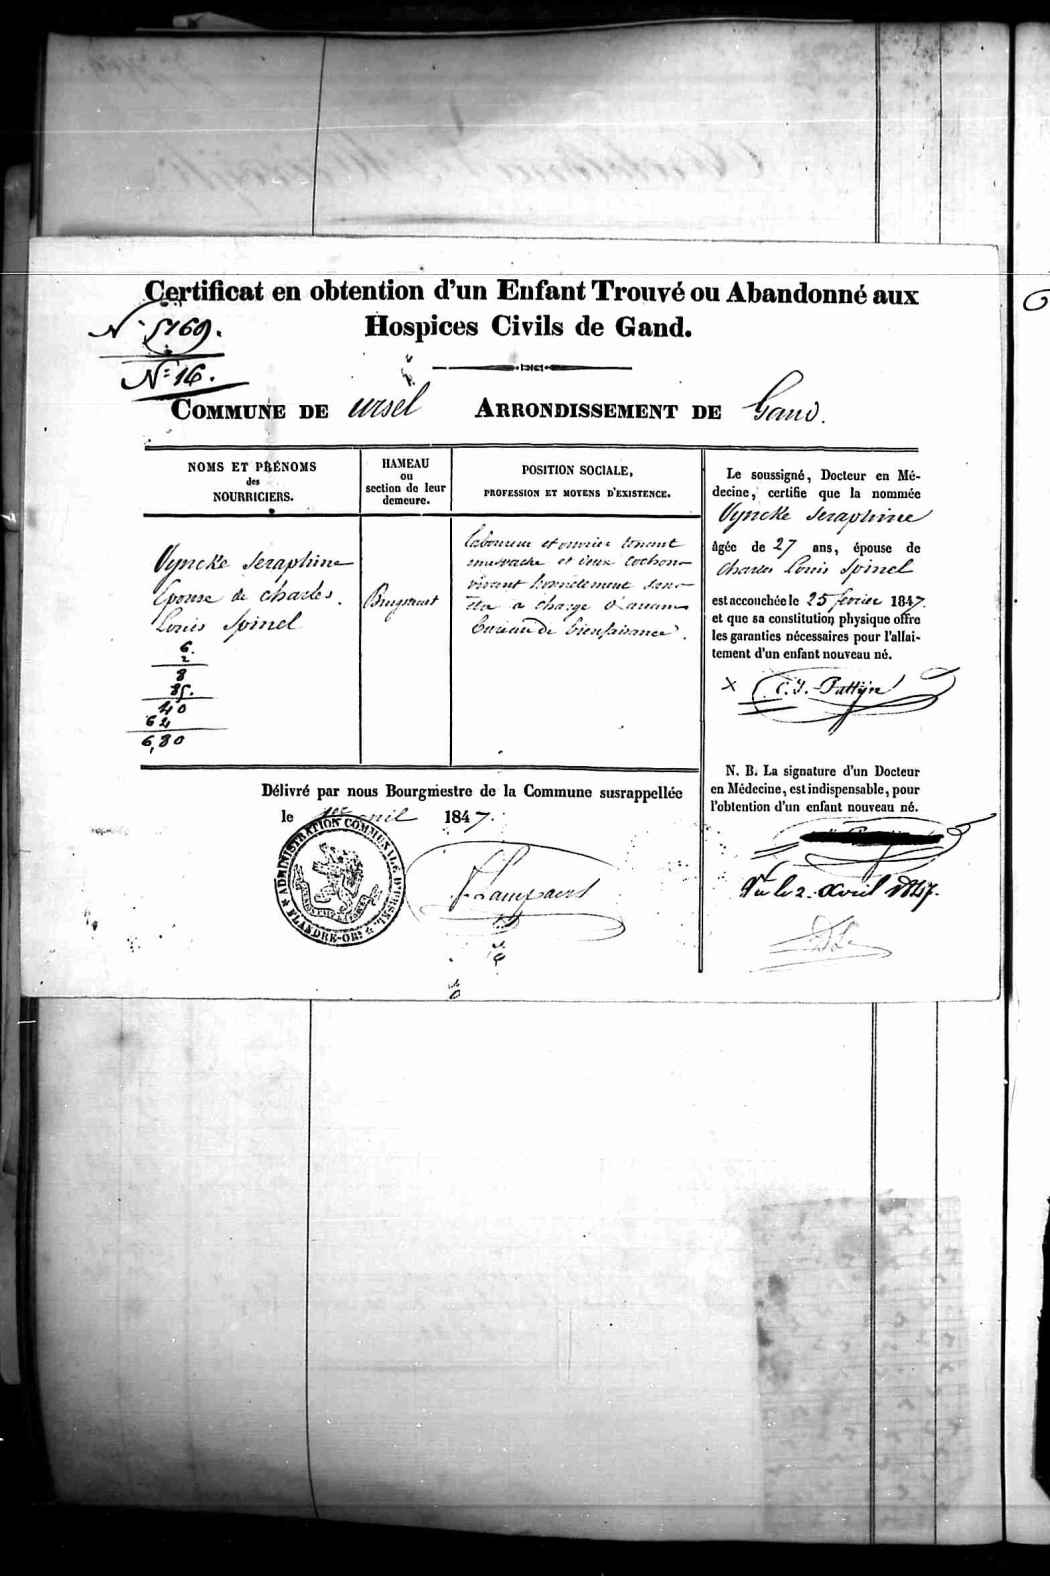 Certificat en obtention d'un Enfant Trouvé ou Abandonné aux
Hospices Civils de Gand.
N° 5169.
N° 16.
COMMUNE DE ursel ARRONDISSEMENT DE Gand.
NOMS ET PRÉNOMS
des
NOURRICIERS.
HAMEAU
ou
section de leur
demeure.
POSITION SOCIALE,
PROFESSION ET MOYENS D'EXISTENCE.
Vyncke Seraphine
Epouse de Charles
Louis Spinel
6.
2
8
85.
40
64
6,80
laboureur et ouvrier tenant
une vache et deux cochons
vivant honnêtement sans
être a charge d'aucun
bureau de bienfaisance.
Le soussigné, Docteur en Mé-
decine, certifie que la nommée
Vyncke Seraphine
âgée de 27 ans, épouse de
Charles Louis Spinel
est accouchée le 25 fevrier 1847.
et que sa constitution physique offre
les garanties nécessaires pour l'allai-
tement d'un enfant nouveau né.
C. J. Pattyn
N. B. La signature d'un Docteur
en Médecine, est indispensable, pour
l'obtention d'un enfant nouveau né.
Vu le 2. Avril 1847.
Délivré par nous Bourgmestre de la Commune susrappellée
le 1er avril 1847.
ADMINISTRATION COMMUNALE D'URSEL
FLANDRE-ORle